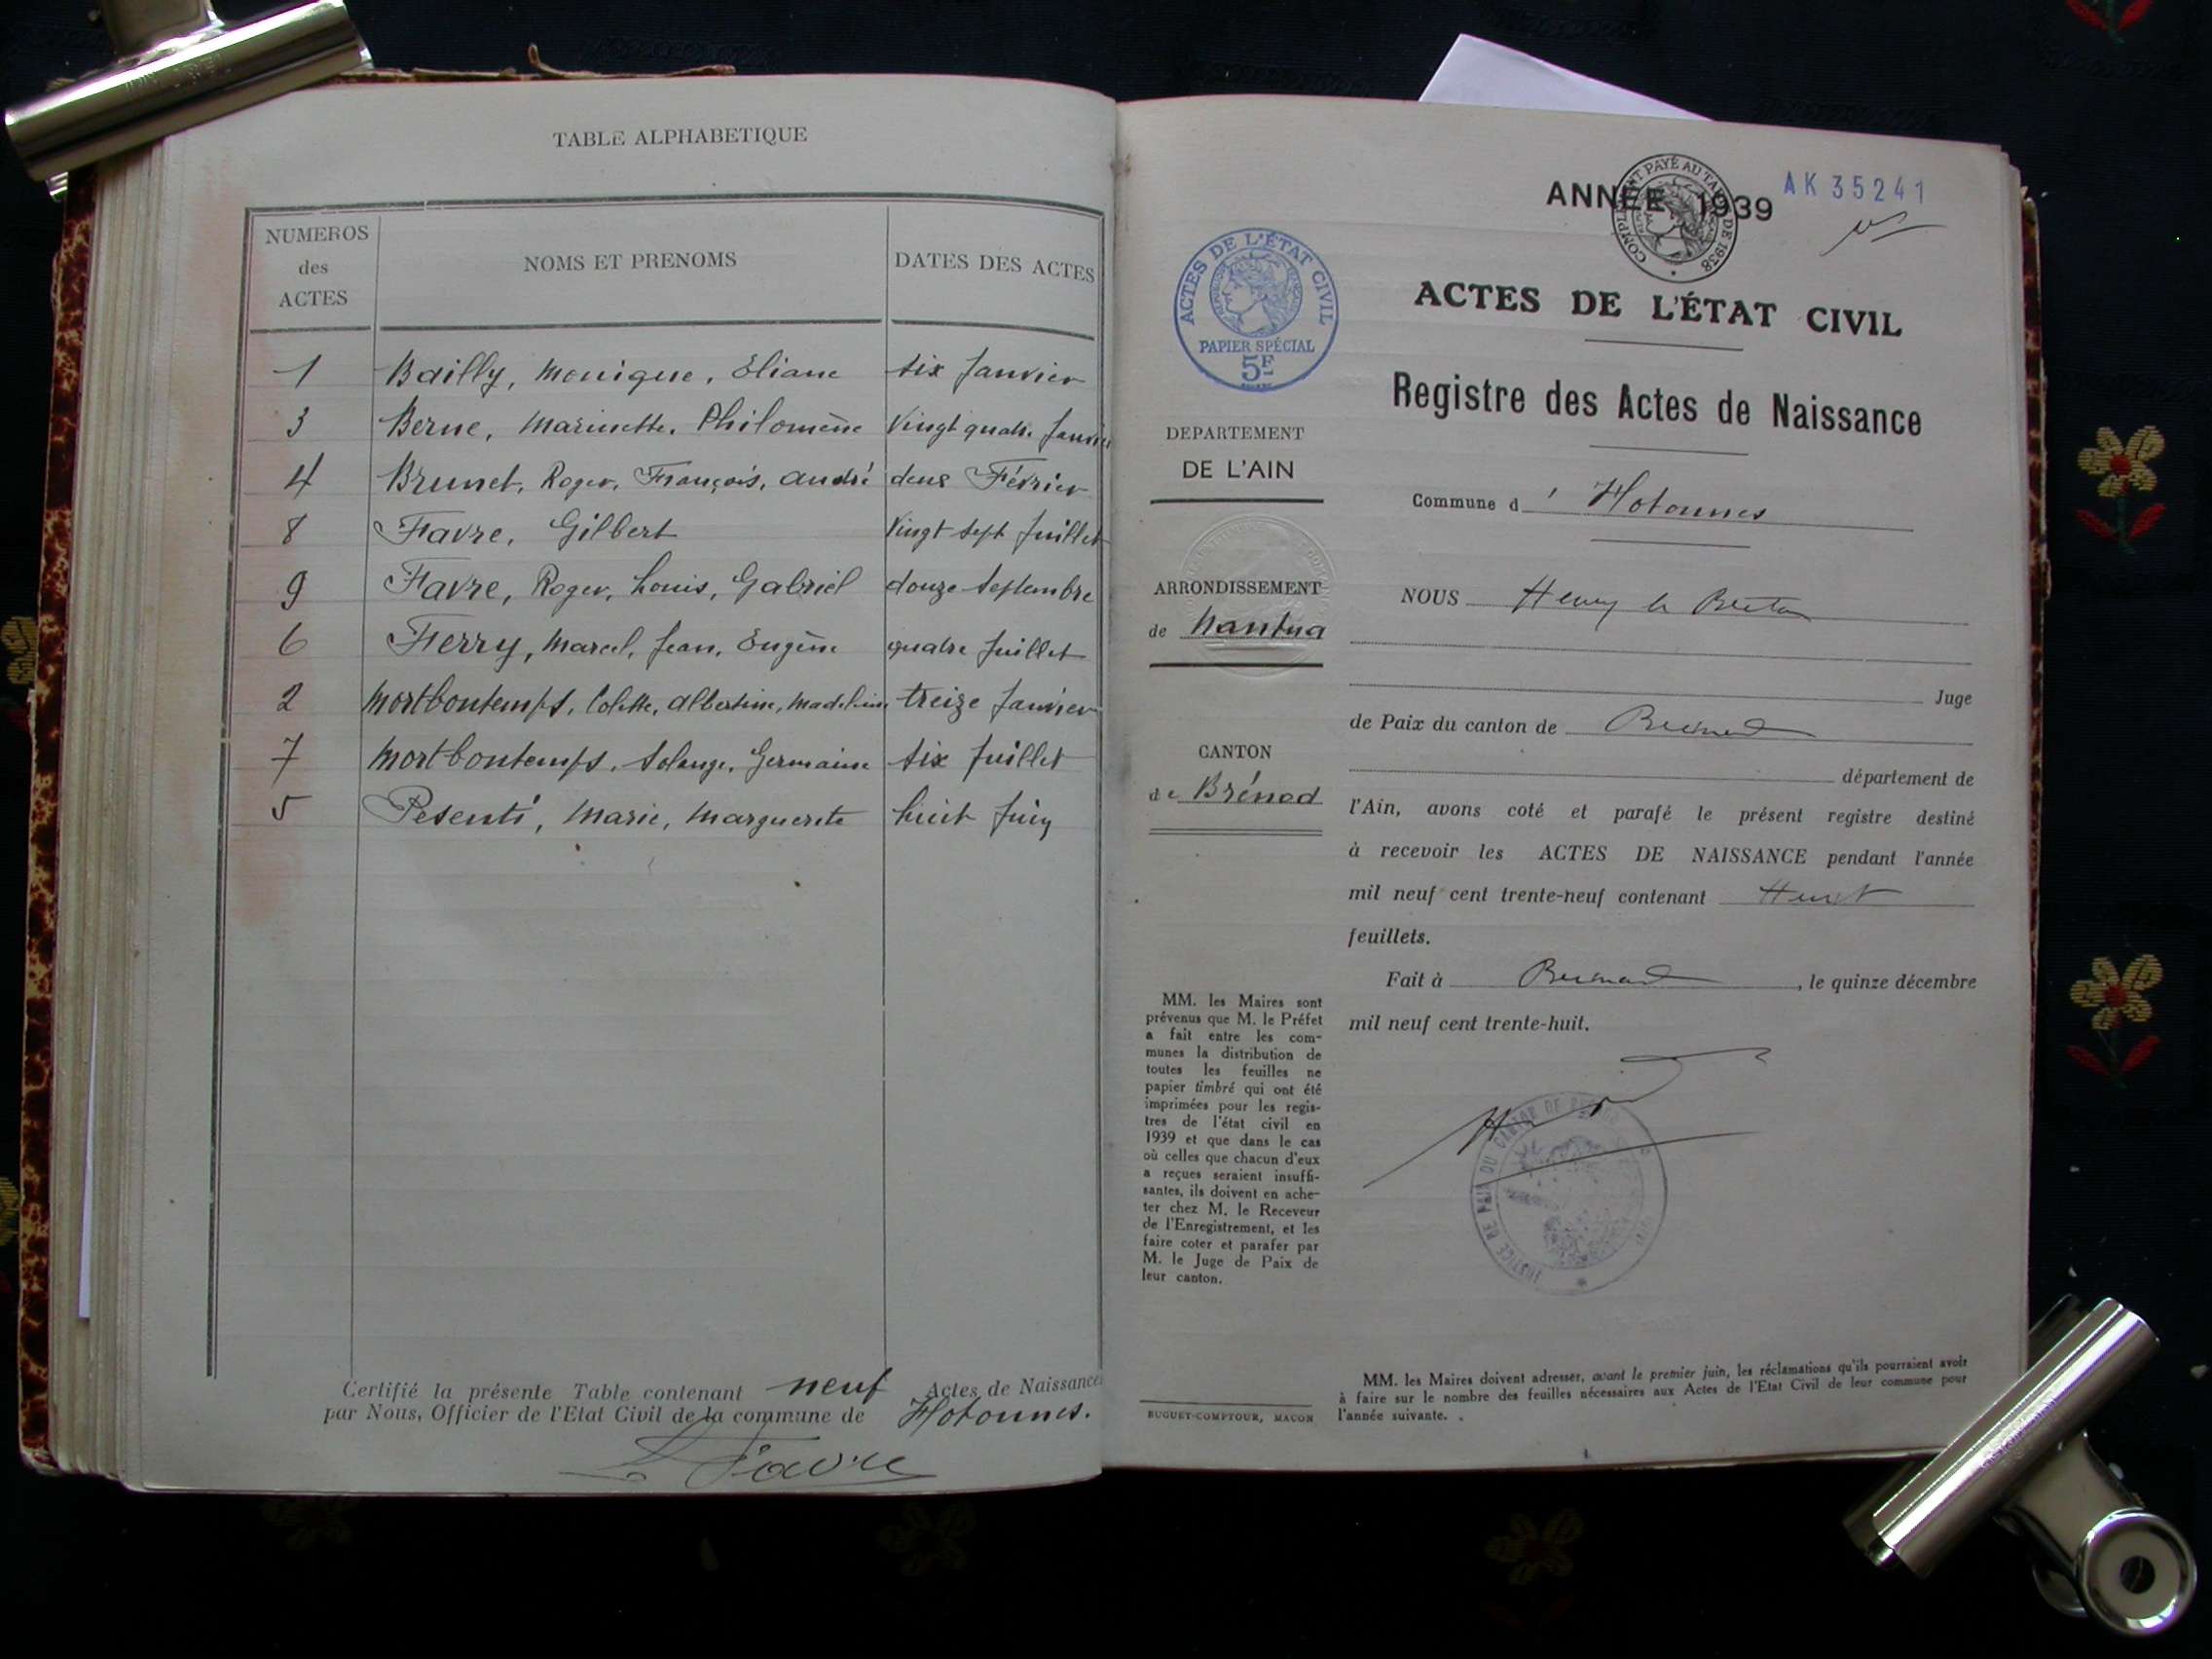 TABLE ALPHABETIQUE
NUMEROS des ACTES NOMS ET PRENOMS DATES DES ACTES
1 Bailly, Monique, Eliane six Janvier
3 Berne, Marinette, Philomène Vingt quatre Janvier
4 Brunet, Roger, François, André deux Février
8 Favre, Gilbert Vingt sept Juillet
9 Favre, Roger, Louis, Gabriel douze Septembre
6 Ferry, Marcel, Jean, Eugène quatre Juillet
2 Mortbontemps, Colette, Albertine, Madeleine treize Janvier
7 Mortbontemps, Solange, Germaine six Juillet
5 Pesenti, Marie, Marguerite huit Juin
Certifié la présente Table contenant neuf Actes de Naissances
par Nous, Officier de l'Etat Civil de la commune de Hotonnes.
Favre
ANNÉE 1939
AK 35241
COMPLEMENT PAYÉ AU TARIF DE 1938
ACTES DE L'ÉTAT CIVIL
PAPIER SPÉCIAL
5F
ACTES DE L'ÉTAT CIVIL
Registre des Actes de Naissance
DEPARTEMENT
DE L'AIN
Commune d' Hotonnes
ARRONDISSEMENT
de Nantua
CANTON
de Brénod
NOUS Henry le Breton
Juge
de Paix du canton de Brénod
département de
l'Ain, avons coté et parafé le présent registre destiné
à recevoir les ACTES DE NAISSANCE pendant l'année
mil neuf cent trente-neuf contenant Huit
feuillets.
Fait à Brénod, le quinze décembre
mil neuf cent trente-huit.
JUSTICE DE PAIX DU CANTON DE BRENOD
MM. les Maires sont
prévenus que M. le Préfet
a fait entre les com-
munes la distribution de
toutes les feuilles ne
papier timbré qui ont été
imprimées pour les regis-
tres de l'état civil en
1939 et que dans le cas
où celles que chacun d'eux
a reçues seraient insuffi-
santes, ils doivent en ache-
ter chez M. le Receveur
de l'Enregistrement, et les
faire coter et parafer par
M. le Juge de Paix de
leur canton.
BUGUET-COMPTOUR, MACON
MM. les Maires doivent adresser, avant le premier juin, les réclamations qu'ils pourraient avoir
à faire sur le nombre des feuilles nécessaires aux Actes de l'Etat Civil de leur commune pour
l'année suivante.